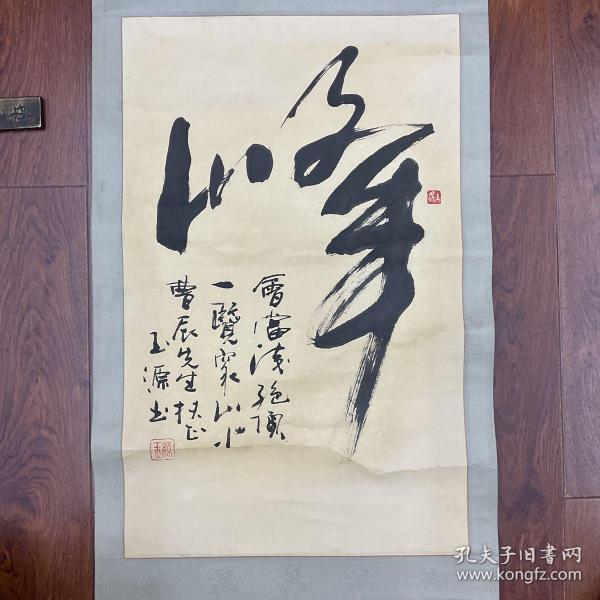 峰
會當凌絕頂
一覽衆山小
曹辰先生扶正
玉源書
孔夫子旧书网
www.kongfz.com